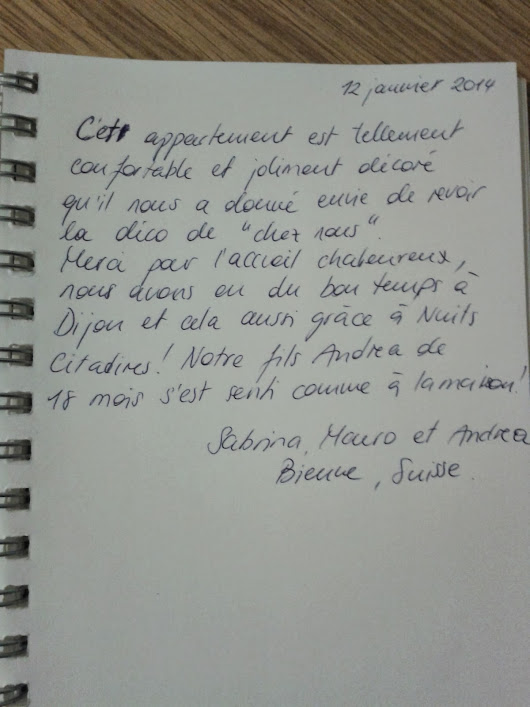 12 janvier 2014
Cet appartement est tellement
confortable et joliment décoré
qu'il nous a donné envie de revoir
la déco de "chez nous".
Merci par l'accueil chaleureux,
nous avons eu du bon temps à
Dijon et cela aussi grâce à Nuits
Citadines! Notre fils Andrea de
18 mois s'est senti comme à la maison!
Sabrina, Mauro et Andrea
Bienne, Suisse.